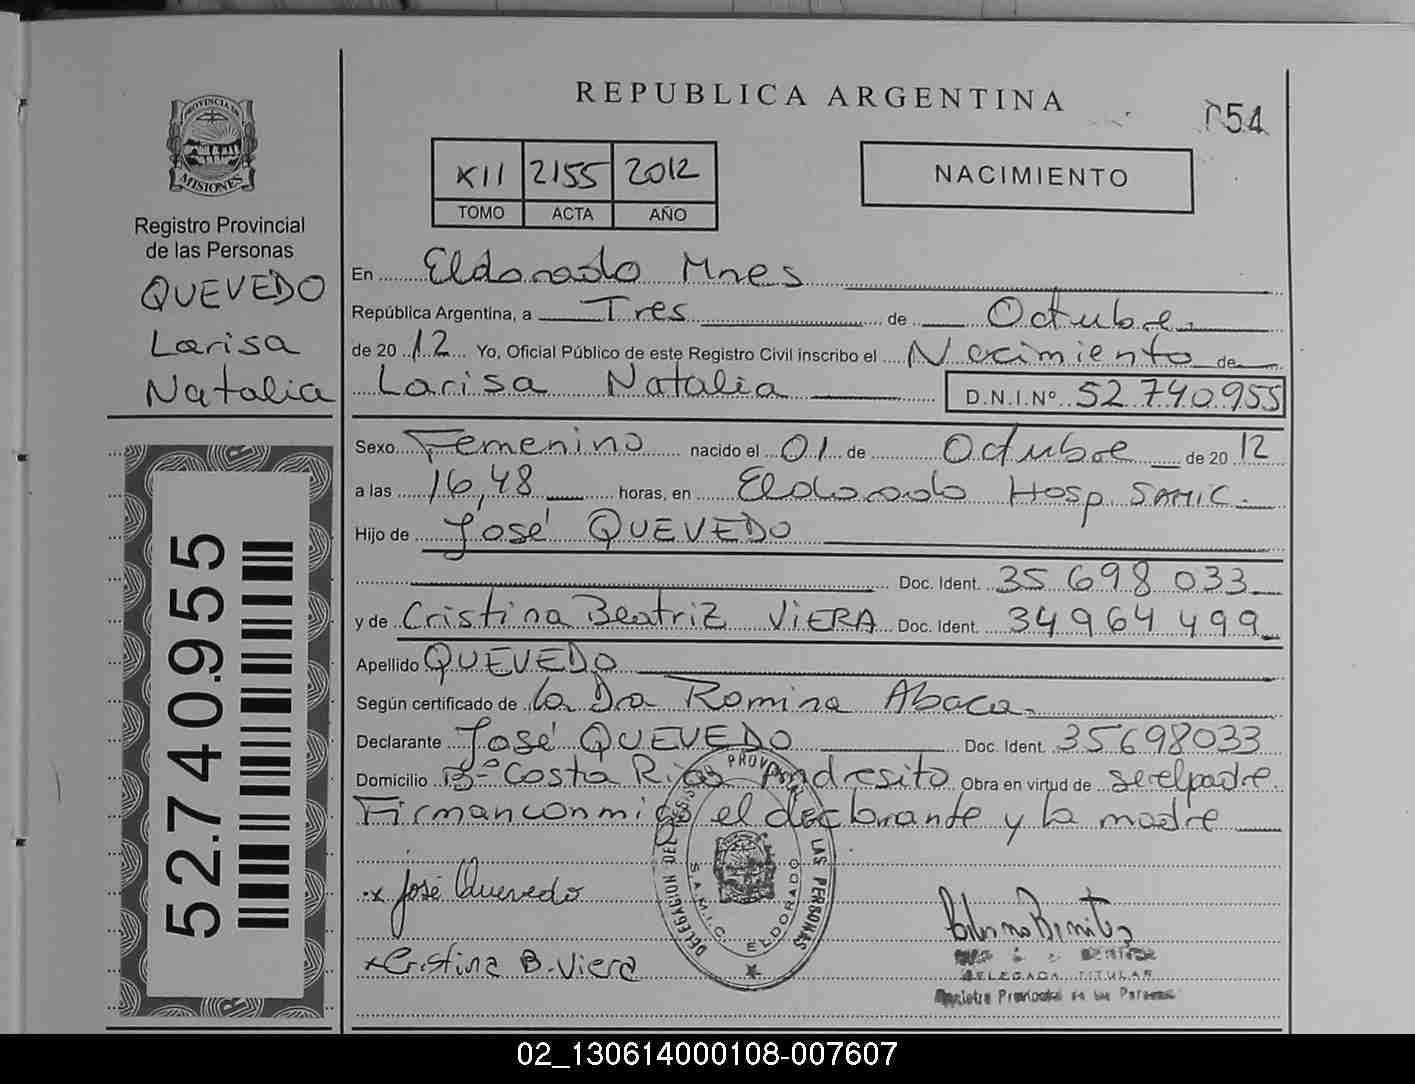 REPUBLICA ARGENTINA
54
PROVINCIA DE
MISIONES
Registro Provincial
de las Personas
QUEVEDO
Larisa
Natalia
52.740.955
XII 2155 2012
TOMO ACTA AÑO
NACIMIENTO
En Eldorado Mnes
República Argentina, a Tres de Octubre
de 2012 Yo, Oficial Público de este Registro Civil inscribo el Nacimiento de
Larisa Natalia D.N.I.Nº 52.740.955
Sexo Femenino nacido el 01 de Octubre de 2012
a las 16,48 horas, en Eldorado Hosp SAMIC.
Hijo de José QUEVEDO
Doc. Ident. 35 698 033
y de Cristina Beatriz VIERA Doc. Ident. 34 964 499
Apellido QUEVEDO
Según certificado de la Dra Romina Abaca
Declarante José QUEVEDO Doc. Ident. 35698033
Domicilio Bº Costa Rica Andresito Obra en virtud de ser el padre.
Firman conmigo el declarante y la madre
x José Quevedo
x Cristina B. Viera
DELEGACION DEL REGISTRO PROV. DE LAS PERSONAS
S.A.M.I.C. ELDORADO
Benitez
DELEGADA TITULAR
Registro Provincial de las Personas
02_130614000108-007607